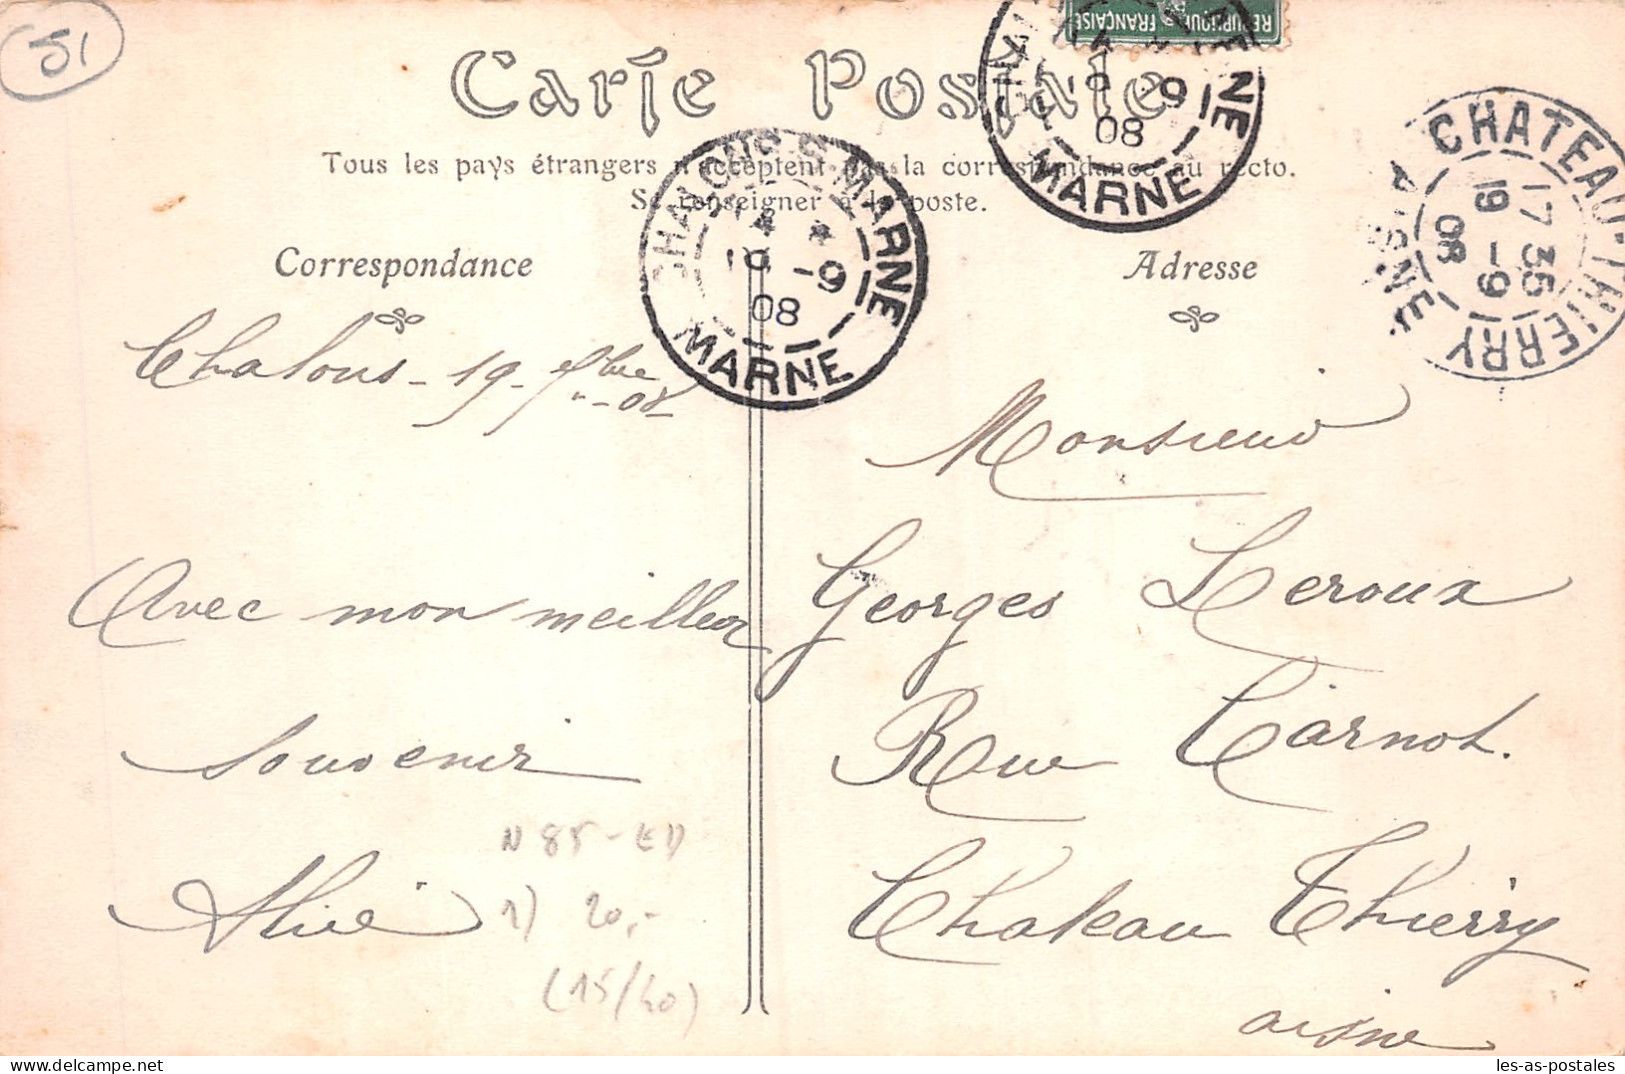 51
RÉPUBLIQUE FRANÇAISE
Carte Postale
Tous les pays étrangers n'acceptent pas la correspondance au recto.
Se renseigner à la poste.
CHALONS S. MARNE
19 -9
08
MARNE
-9
08
MARNE
CHATEAU-THIERRY
17 35
19 -9
08
AISNE
Correspondance
Adresse
Chalons - 19 - 7bre
-08
Avec mon meilleur
souvenir
Alice
Monsieur
Georges Leroux
Rue Carnot.
Chateau Thierry
aisne
N 85 - ED
1) 20,-
(15/40)
les-as-postales